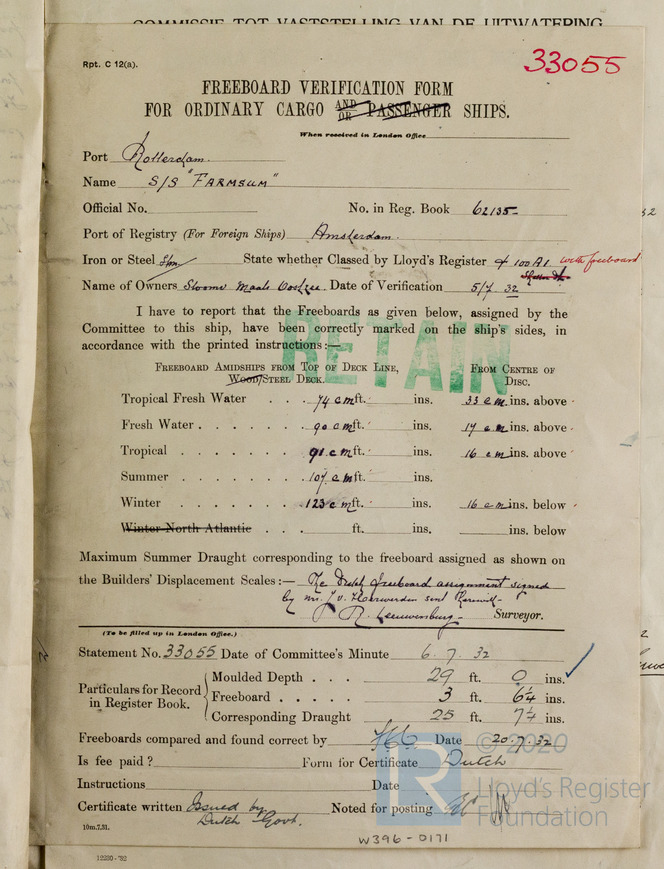 COMMISSIE TOT VASTSTELLING VAN DE UITWATERING
Rpt. C 12(a).
33055
FREEBOARD VERIFICATION FORM
FOR ORDINARY CARGO AND OR PASSENGER SHIPS.
When received in London Office
Port Rotterdam.
Name S/S "FARMSUM"
Official No. No. in Reg. Book 62135
Port of Registry (For Foreign Ships) Amsterdam.
Iron or Steel State whether Classed by Lloyd's Register + 100 A1. with freeboard
Name of Owners Stoomv Maats Date of Verification 5/7 32
I have to report that the Freeboards as given below, assigned by the
Committee to this ship, have been correctly marked on the ship's sides, in
accordance with the printed instructions:—
RETAIN
FREEBOARD AMIDSHIPS FROM TOP OF DECK LINE, FROM CENTRE OF
WOOD/STEEL DECK. DISC.
Tropical Fresh Water . . . 74 cm ft. ins. 33 cm ins. above
Fresh Water . . . . . . 90 cm ft. ins. 17 cm ins. above
Tropical . . . . . . . 91 cm ft. ins. 16 cm ins. above
Summer . . . . . . . 107 cm ft. ins.
Winter . . . . . . . 123 cm ft. ins. 16 cm ins. below
Winter North Atlantic . . . ft. ins. ins. below
Maximum Summer Draught corresponding to the freeboard assigned as shown on
the Builders' Displacement Scales:— The Dutch freeboard assignment signed
by mr. J v. Herwerden sent herewith
R. Leeuwenburg Surveyor.
(To be filled up in London Office.)
Statement No. 33055 Date of Committee's Minute 6.7.32
Particulars for Record in Register Book.
Moulded Depth . . . 29 ft. 0 ins.
Freeboard . . . . . 3 ft. 6¼ ins.
Corresponding Draught 25 ft. 7¼ ins.
Freeboards compared and found correct by Date 20.7.32
Is fee paid ? Form for Certificate Dutch
Instructions Date
Certificate written Issued by Noted for posting
Dutch Govt.
10m,7,31.
W396-0171
12220-'32
© 2020
LR
Lloyd's Register
Foundation